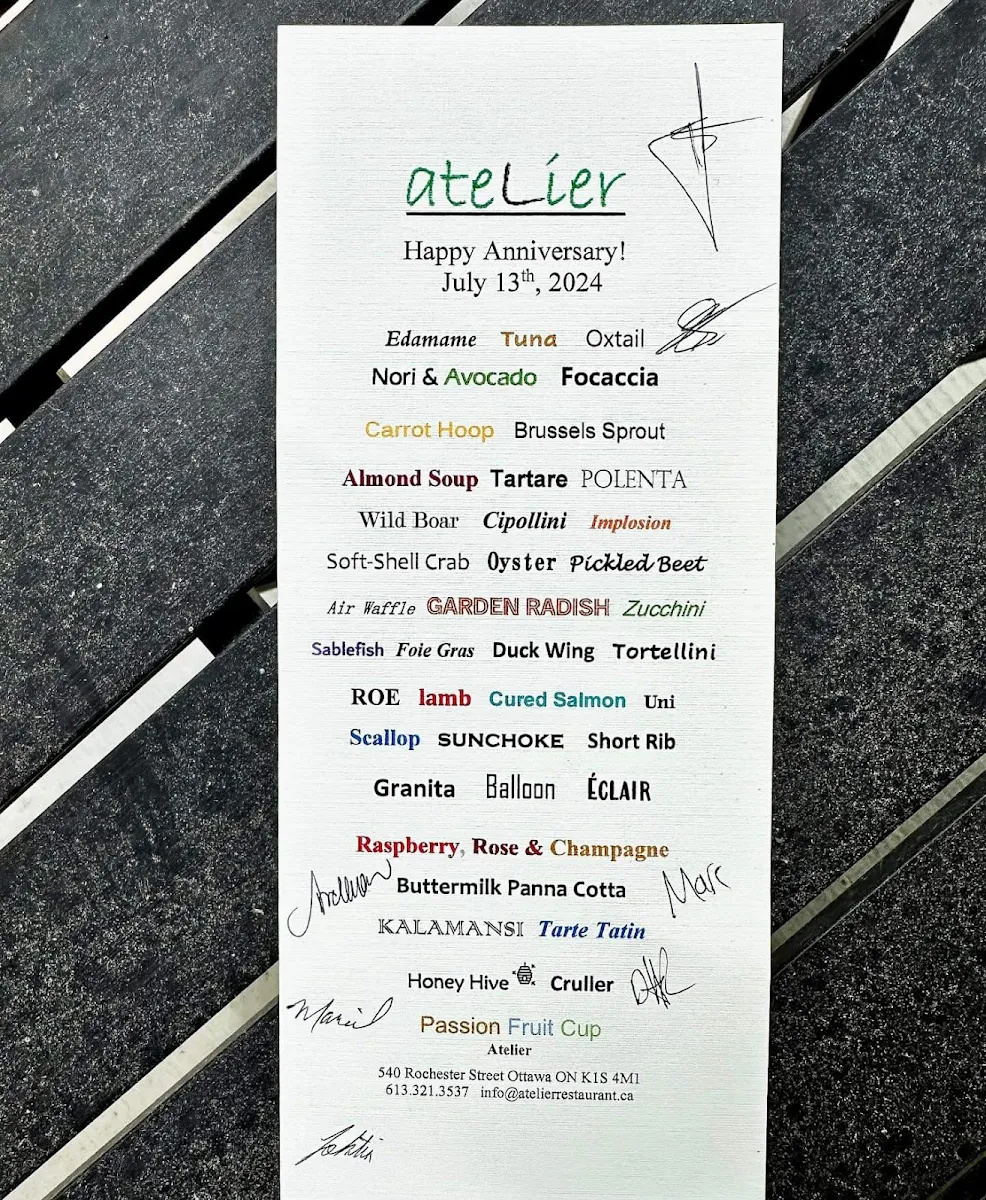 ateLier
Happy Anniversary!
July 13th, 2024
Edamame Tuna Oxtail
Nori & Avocado Focaccia
Carrot Hoop Brussels Sprout
Almond Soup Tartare POLENTA
Wild Boar Cipollini Implosion
Soft-Shell Crab Oyster Pickled Beet
Air Waffle GARDEN RADISH Zucchini
Sablefish Foie Gras Duck Wing Tortellini
ROE lamb Cured Salmon Uni
Scallop SUNCHOKE Short Rib
Granita Balloon ÉCLAIR
Raspberry, Rose & Champagne
Buttermilk Panna Cotta Marc
KALAMANSI Tarte Tatin
Honey Hive Cruller
Passion Fruit Cup
Atelier
540 Rochester Street Ottawa ON K1S 4M1
613.321.3537 info@atelierrestaurant.ca